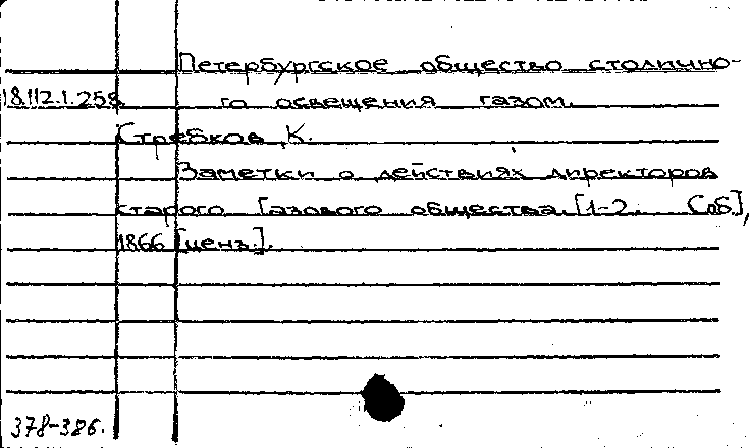 Петербургское общество столично-
18.112.1.258 го освещения газом.
Стребков, К.
Заметки о действиях директоров
старого Газового общества. [1-2. Спб.],
1866 [ценз.].
378-386.